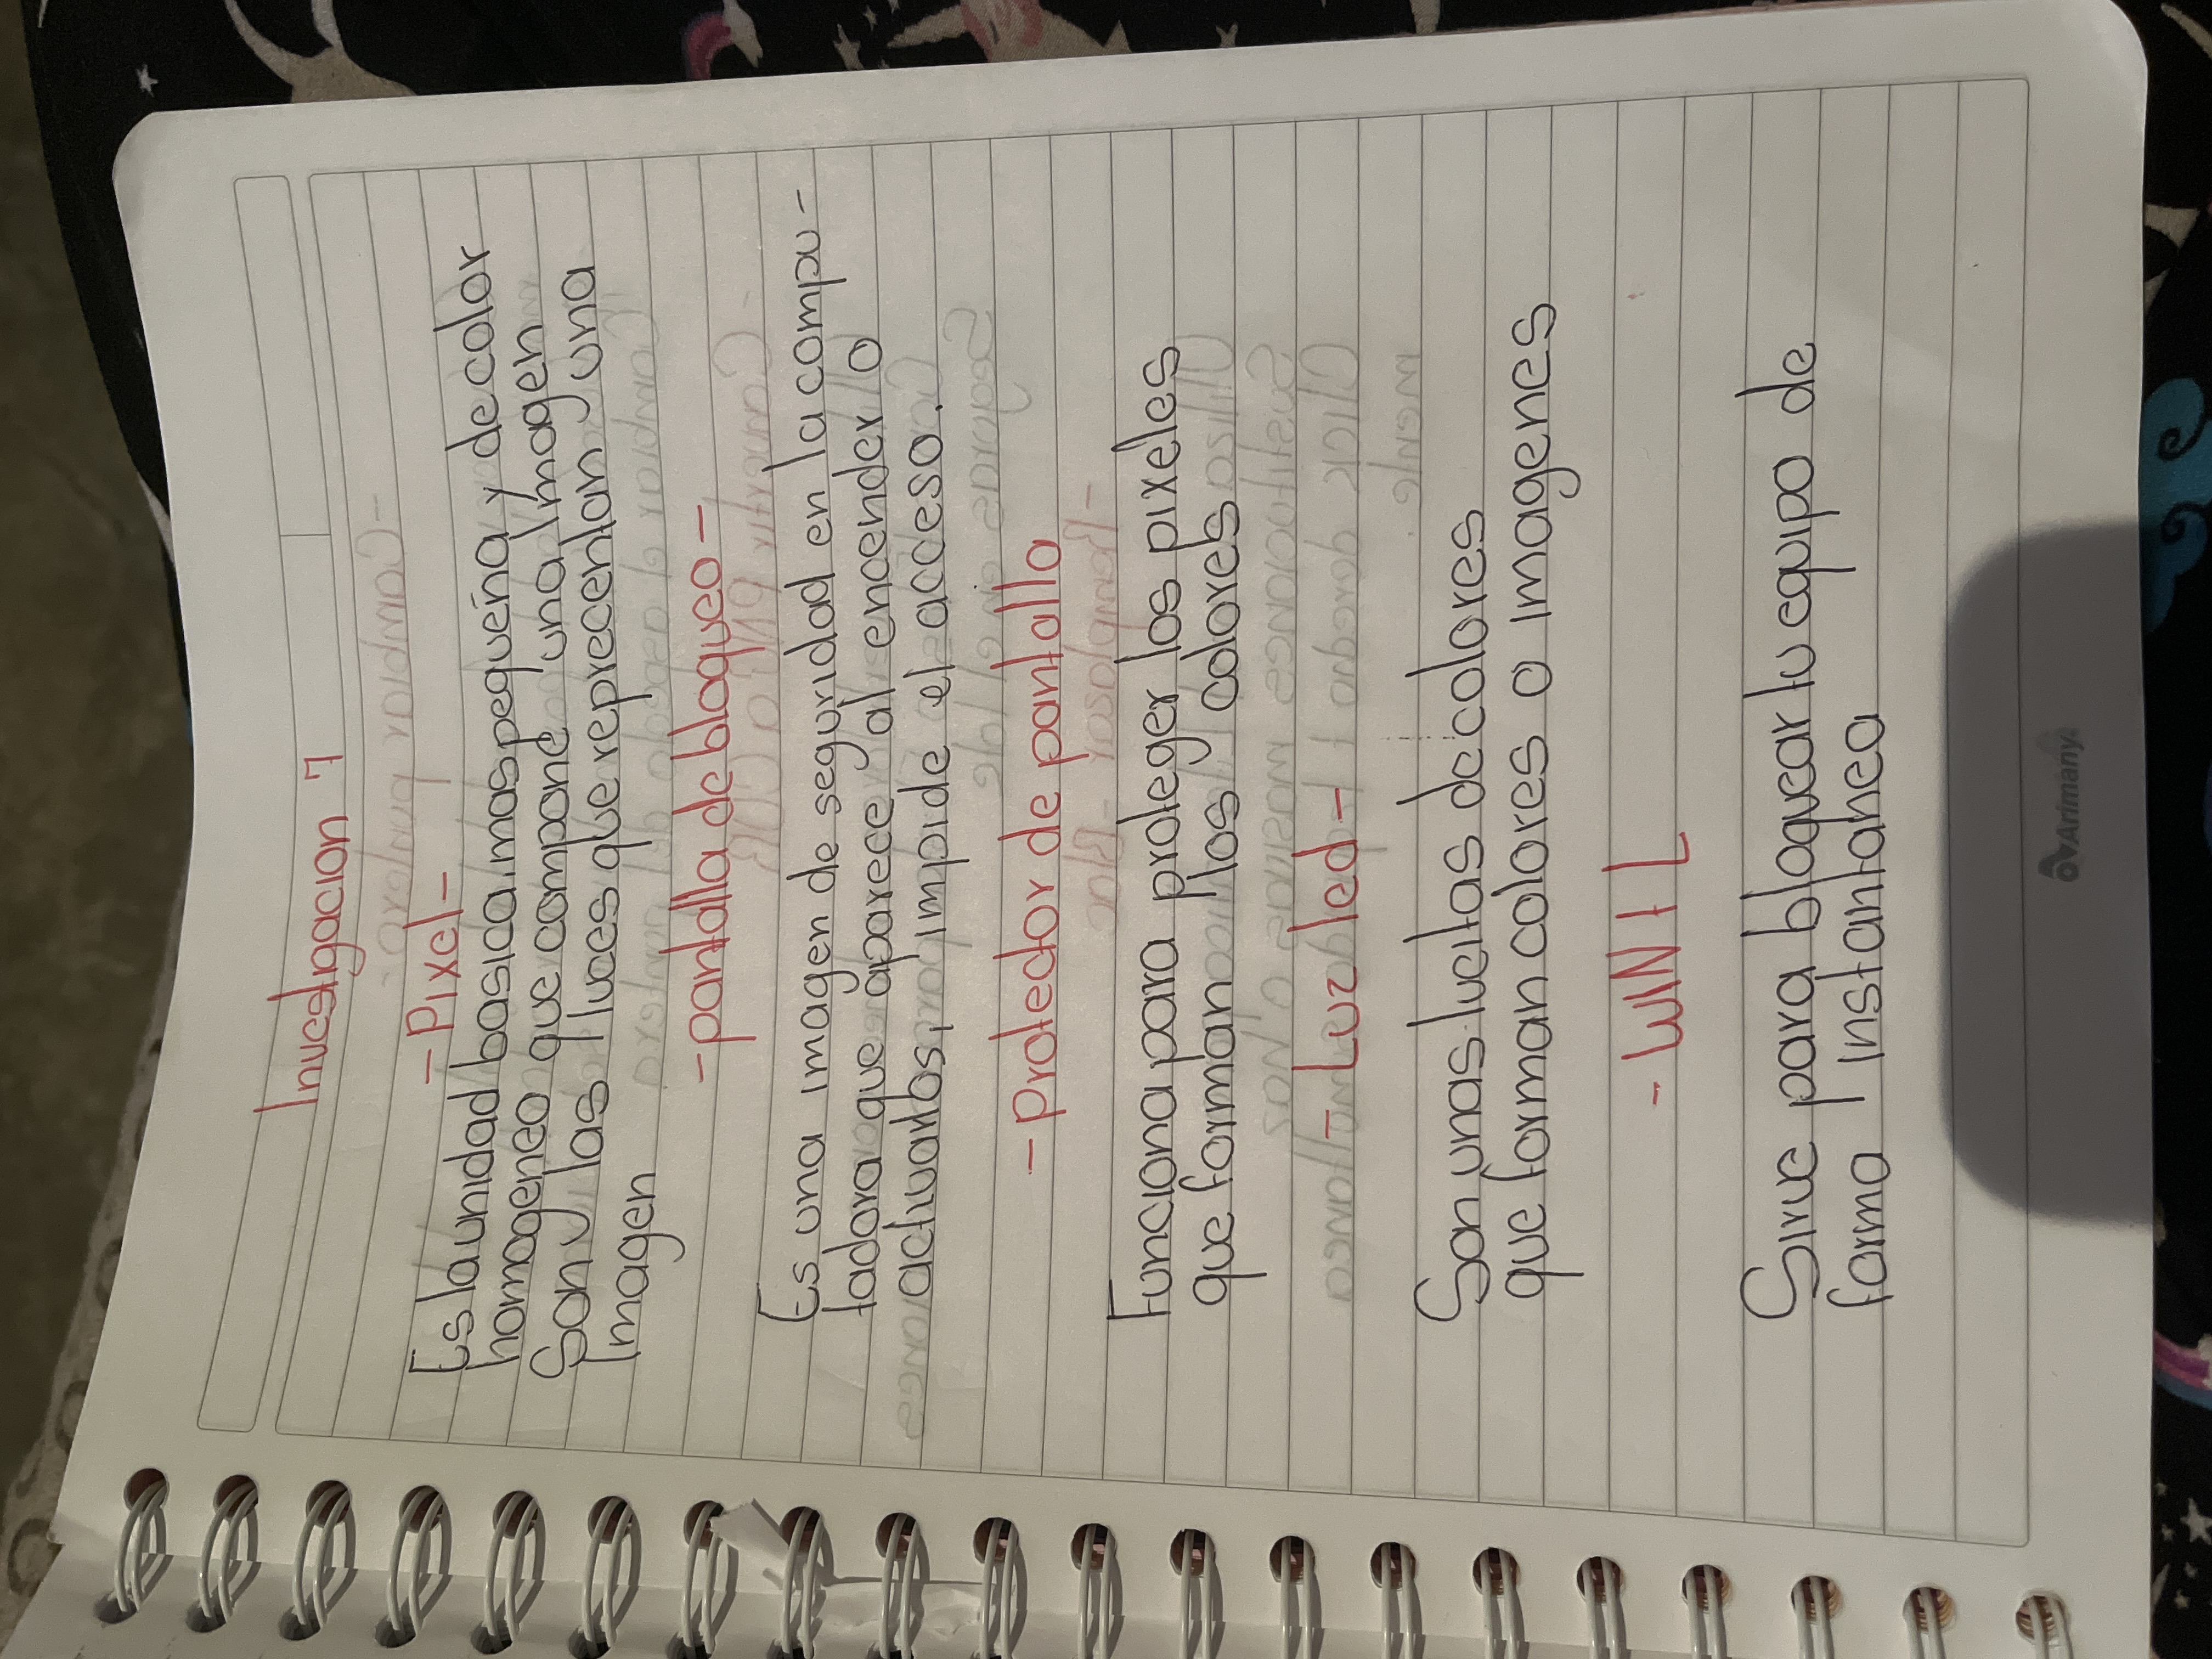 Investigacion 7
-Pixel-
Es la unidad basica mas pequeña y de color
homogeneo que compone una Imagen
Son y las luces que reprecentan una
Imagen
-pantalla de bloqueo-
Es una imagen de seguridad en la compu-
tadora que aparece al encender o
activarlos, impide el acceso.
-Protector de pantalla
Funciona para proteger los pixeles
que forman los colores
-Luz led-
Son unas lucitas de colores
que forman colores o Imagenes
-WIN + L
Sirve para bloquear tu equipo de
forma Instantanea
Arimany.